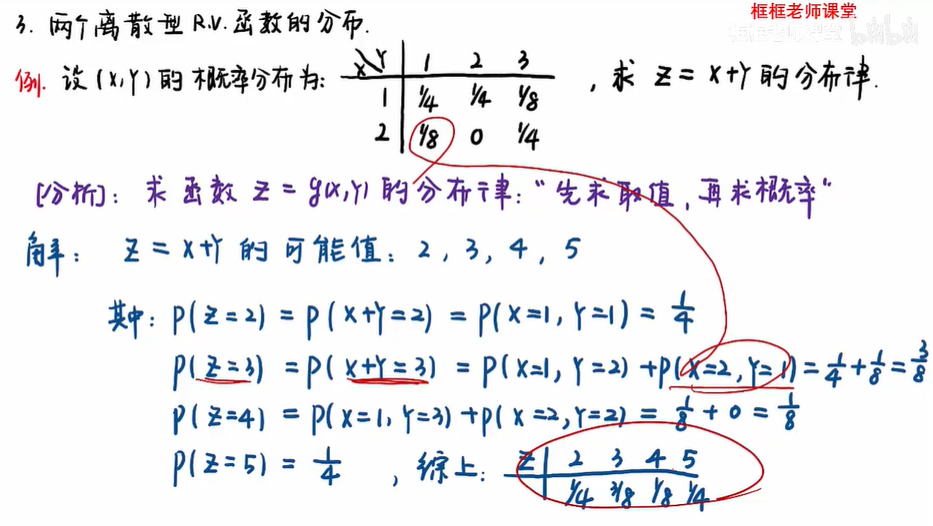 框框老师课堂
3. 两个离散型 R.V. 函数的分布.
例. 设 (X,Y) 的概率分布为: X\Y 1 2 3 , 求 Z = X+Y 的分布律.
1 1/4 1/4 1/8
2 1/8 0 1/4
[分析]: 求函数 Z = g(X,Y) 的分布律: “先求取值, 再求概率”
解: Z = X+Y 的可能值: 2, 3, 4, 5
其中: P(Z=2) = P(X+Y=2) = P(X=1, Y=1) = 1/4
P(Z=3) = P(X+Y=3) = P(X=1, Y=2) + P(X=2, Y=1) = 1/4 + 1/8 = 3/8
P(Z=4) = P(X=1, Y=3) + P(X=2, Y=2) = 1/8 + 0 = 1/8
P(Z=5) = 1/4 , 综上: Z 2 3 4 5
1/4 3/8 1/8 1/4